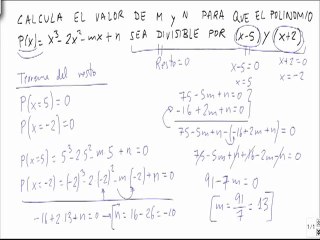 CALCULA EL VALOR DE M Y N PARA QUE EL POLINOMIO
P(x)= x³-2x²-mx+n SEA DIVISIBLE POR (x-5) Y (x+2)
Teorema del resto
Resto=0
x-5=0
x=5
x+2=0
x=-2
P(x=5)=0
P(x=-2)=0
P(x=5)=5³-2·5²-m·5+n=0
P(x=-2)=(-2)³-2·(-2)²-m(-2)+n=0
-16+2·13+n=0→[n=16-26=-10
75-5m+n=0
-16+2m+n=0
75-5m+n-(-16+2m+n)=0
75-5m+n+16-2m-n=0
91-7m=0
[m=91/7=13]
1/1